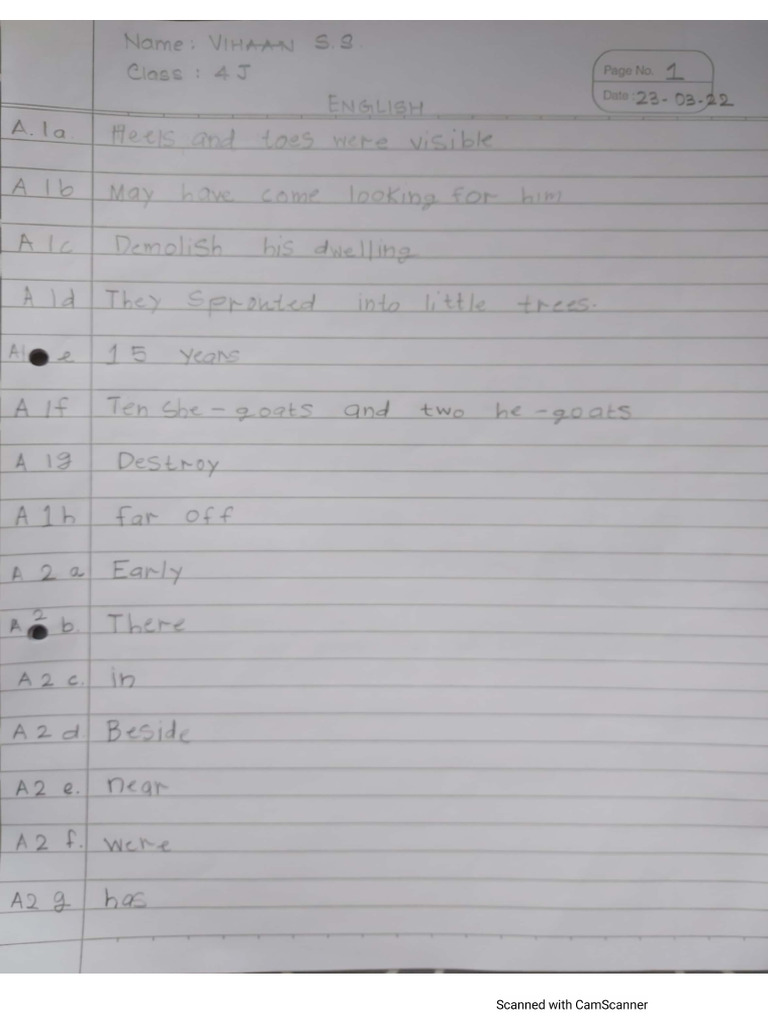 Name: VIHAAN S.S.
Class: 4J
Page No. 1
Date: 23-03-22
ENGLISH
A.1a Heels and toes were visible
A 1b May have come looking for him
A 1c Demolish his dwelling
A 1d They Sprouted into little trees.
A1 e 15 years
A 1f Ten She-goats and two he-goats
A 1g Destroy
A 1h far off
A 2 a Early
A 2 b. There
A 2 c. in
A 2 d Beside
A2 e. near
A2 f. were
A2 g has
Scanned with CamScanner